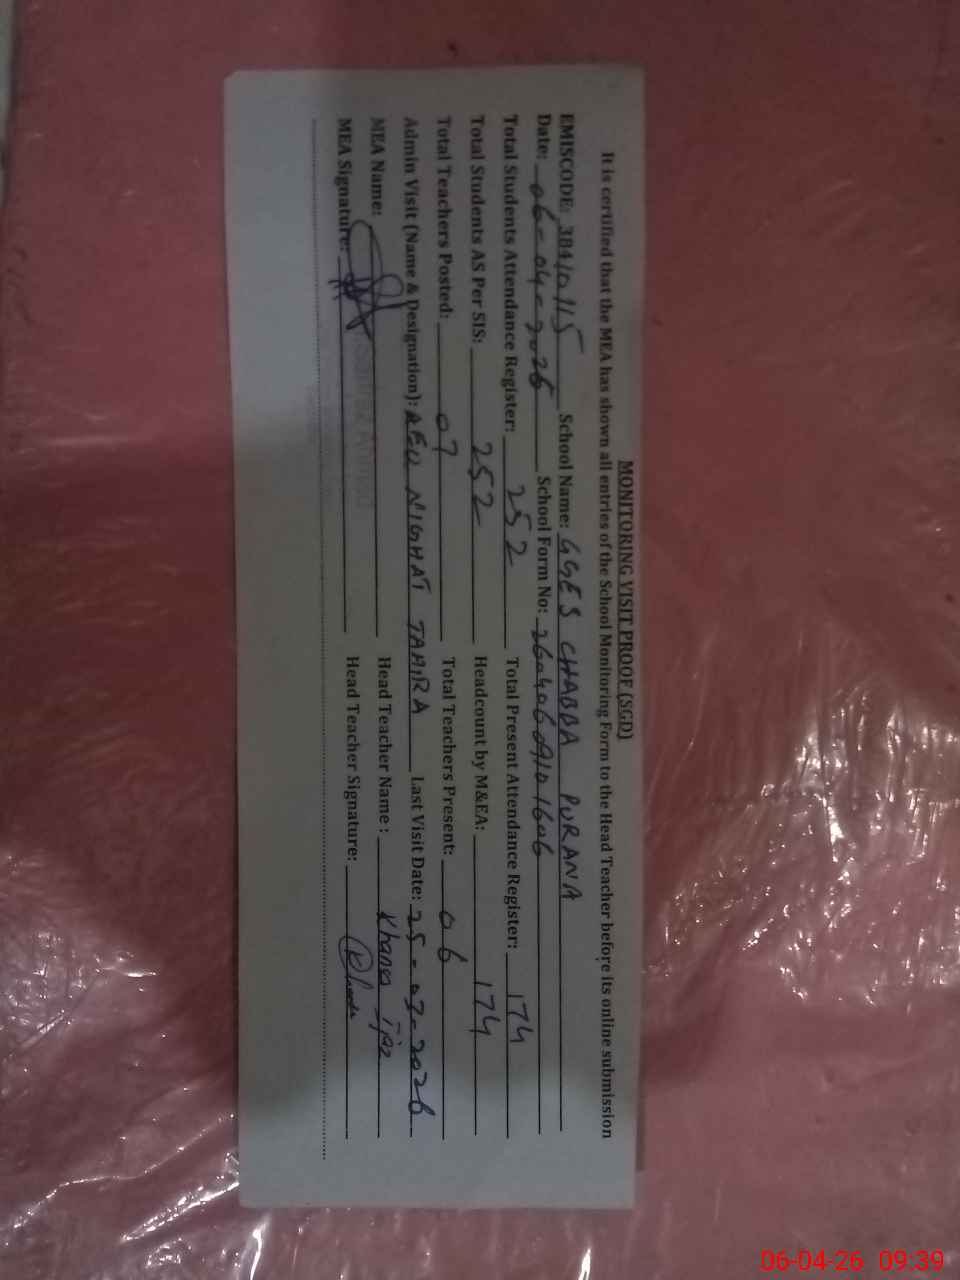 MONITORING VISIT PROOF (SGD)
It is certified that the MEA has shown all entries of the School Monitoring Form to the Head Teacher before its online submission
EMISCODE: 38410115 School Name: GGES CHABBA PURANA
Date: 06-04-2026 School Form No:
Total Students Attendance Register: 252 Total Present Attendance Register: 174
Total Students AS Per SIS: 252 Headcount by M&EA: 174
Total Teachers Posted: 07 Total Teachers Present: 06
Admin Visit (Name & Designation): AEO NIGHAT TAHIRA Last Visit Date: 25-03-2026
MEA Name: Head Teacher Name: Ijaz
MEA Signature: Head Teacher Signature:
06-04-26 09:39